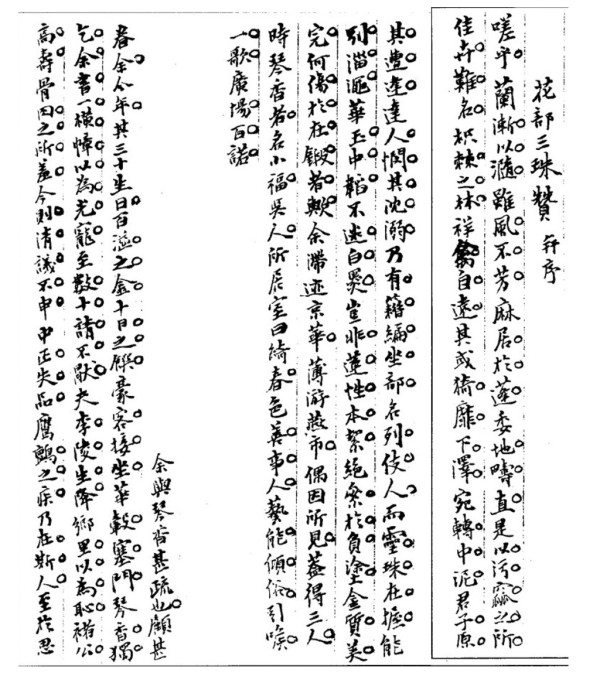 花部三珠贊 并序
嗟乎蘭漸以滫雖風不芳麻居於蓬委地疇直是以污窳之所
佳卉難名枳棘之林祥禽自遠其或猗靡下澤宛轉中泥君子原
其遭逢達人憫其沈溺乃有籍編坐部名列伎人而靈珠在握能
別淄澠華玉中韜不迷白黑豈非蓮性本絜絕染於負塗金質美
完何傷於在鍛者歟余滯迹京華薄游燕市偶因所見蓋得三人
時琴香者名小福吳人所居室曰綺春色英事人藝能傾儕引喉
一歌廣場百諾
余與琴香甚疏也顧甚
眷余今年其三十生日百溢之金十日之釀豪客接坐華轂塞門琴香獨
乞余書一橫幛以為光寵至數十請不猒夫李陵生降鄉里以為恥褚公
高壽骨肉之所羞今則清議不申中正失品鷹鸇之疾乃在斯人至於思